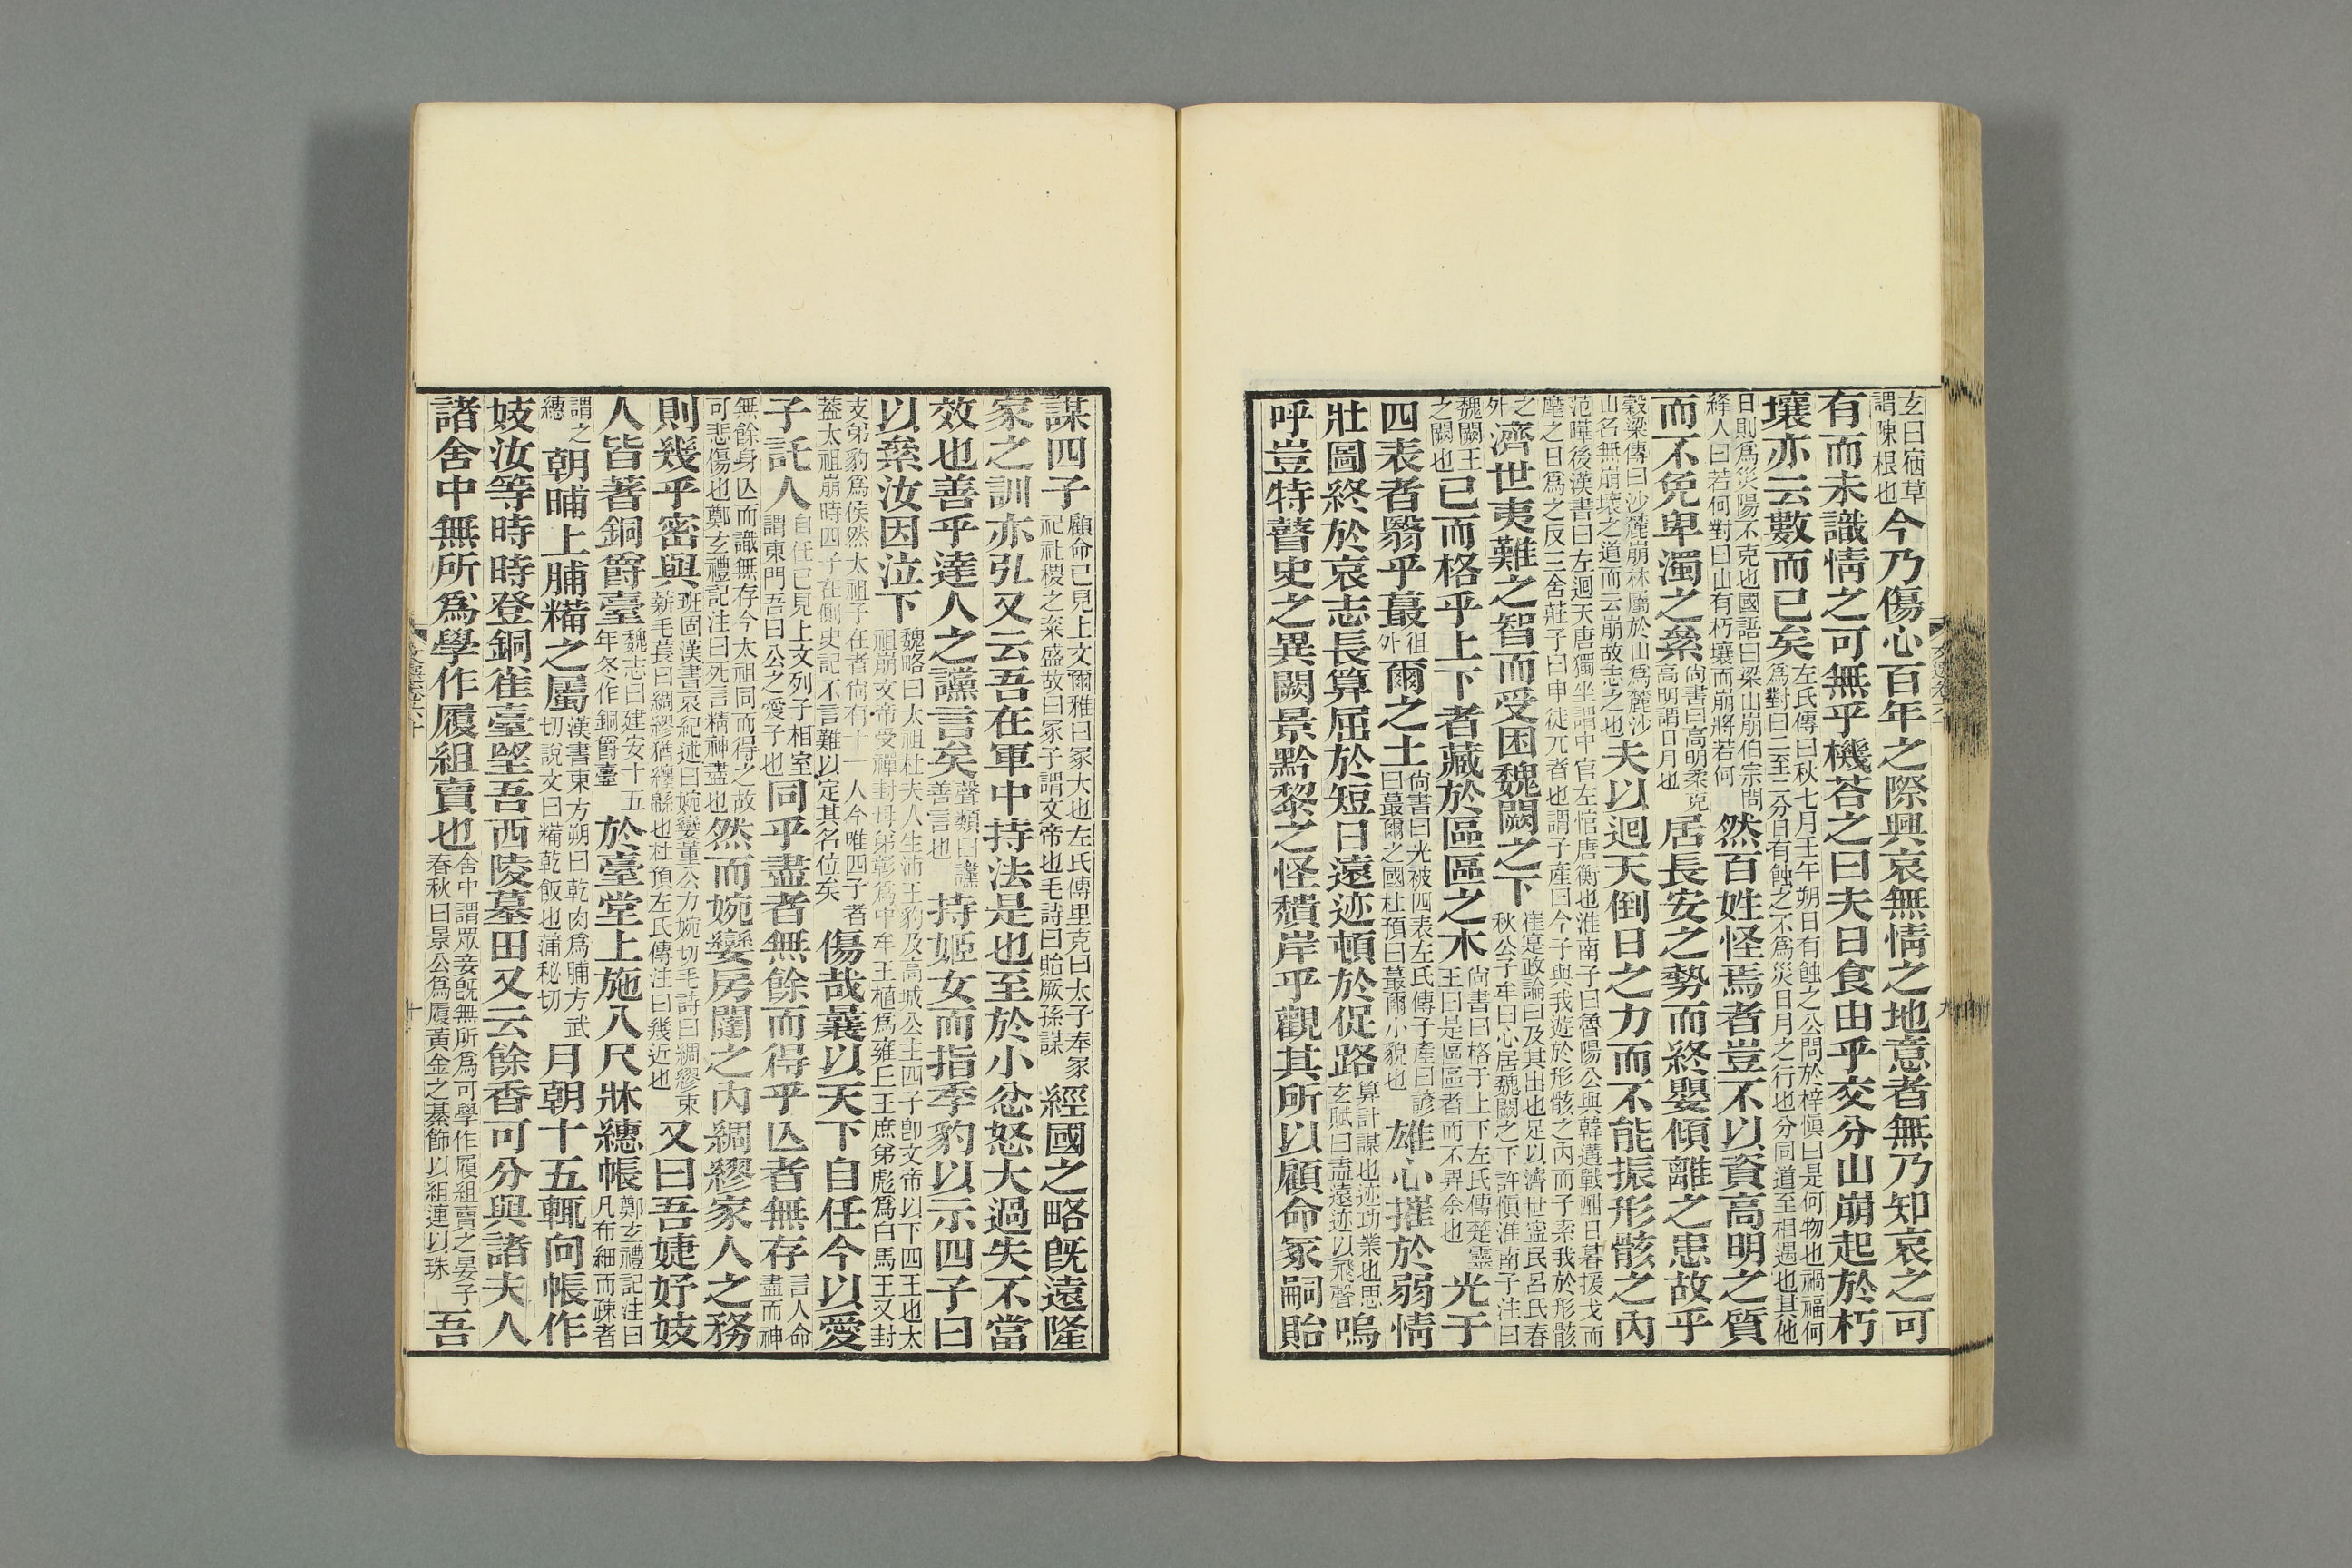 玄曰宿草
謂陳根也
今乃傷心百年之際興哀無情之地意者無乃知哀之可
有而未識情之可無乎機荅之曰夫日食由乎交分山崩起於朽
壤亦云數而已矣
左氏傳曰秋七月壬午朔日有蝕之公問於梓慎曰是何物也禍福何
爲對曰二至二分日有蝕之不爲災日月之行也分同道至相遇也其他
日則爲災陽不克也國語曰梁山崩伯宗問
絳人曰若何對曰山有朽壤而崩將若何
然百姓怪焉者豈不以資高明之質
而不免卑濁之絫
尚書曰高明柔克
高明謂日月也
居長安之勢而終嬰傾離之患故乎
穀梁傳曰沙麓崩林屬於山爲麓沙
山名無崩壞之道而云崩故志之也
夫以迴天倒日之力而不能振形骸之內
范曄後漢書曰左迴天唐獨坐謂中官左悺唐衡也淮南子曰魯陽公與韓遘戰酣日暮援戈而
麾之日爲之反三舍莊子曰申徒兀者也謂子產曰今子與我遊於形骸之內而子索我於形骸
之
外
濟世夷難之智而受困魏闕之下
崔寔政論曰及其出也足以濟世寧民呂氏春
秋公子牟曰心居魏闕之下許慎淮南子注曰
魏闕王
之闕也
已而格乎上下者藏於區區之木
尚書曰格于上下左氏傳楚靈
王曰是區區者而不畀余也
光于
四表者翳乎蕞
徂
外
爾之土
尚書曰光被四表左氏傳子產曰諺
曰蕞爾之國杜預曰蕞爾小貌也
雄心摧於弱情
壯圖終於哀志長算屈於短日遠迹頓於促路
算計謀也迹功業也思
玄賦曰盍遠迹以飛聲
嗚
呼豈特瞽史之異闕景黔黎之怪頹岸乎觀其所以顧命冢嗣貽
謀四子
顧命已見上文爾雅曰冢大也左氏傳里克曰太子奉冢
祀社稷之粢盛故曰冢子謂文帝也毛詩曰貽厥孫謀
經國之略旣遠隆
家之訓亦弘又云吾在軍中持法是也至於小忿怒大過失不當
效也善乎達人之讜言矣
聲類曰讜
善言也
持姬女而指季豹以示四子曰
以絫汝因泣下
魏略曰太祖杜夫人生沛王豹及高城公主四子卽文帝以下四王也太
祖崩文帝受禪封母弟彰爲中牟王植爲雍丘王庶弟彪爲白馬王又封
支弟豹爲侯然太祖子在者尚有十一人今唯四子者
葢太祖崩時四子在側史記不言難以定其名位矣
傷哉曩以天下自任今以愛
子託人
自任已見上文列子相室
謂東門吾曰公之愛子也
同乎盡者無餘而得乎亾者無存
言人命
盡而神
無餘身亾而識無存今太祖同而得之故
可悲傷也鄭玄禮記注曰死言精神盡也
然而婉孌房闥之內綢繆家人之務
則幾乎密與
班固漢書哀紀述曰婉孌董公力婉切毛詩曰綢繆束
薪毛萇曰綢繆猶纏緜也杜預左氏傳注曰幾近也
又曰吾婕妤妓
人皆著銅爵臺
魏志曰建安十五
年冬作銅爵臺
於臺堂上施八尺牀繐帳
鄭玄禮記注曰
凡布細而疎者
謂之
繐
朝晡上脯糒之屬
漢書東方朔曰乾肉爲脯方武
切說文曰糒乾飯也蒲秘切
月朝十五輒向帳作
妓汝等時時登銅雀臺望吾西陵墓田又云餘香可分與諸夫人
諸舍中無所爲學作履組賣也
舍中謂眾妾旣無所爲可學作履組賣之晏子
春秋曰景公爲履黃金之綦飾以組連以珠
吾